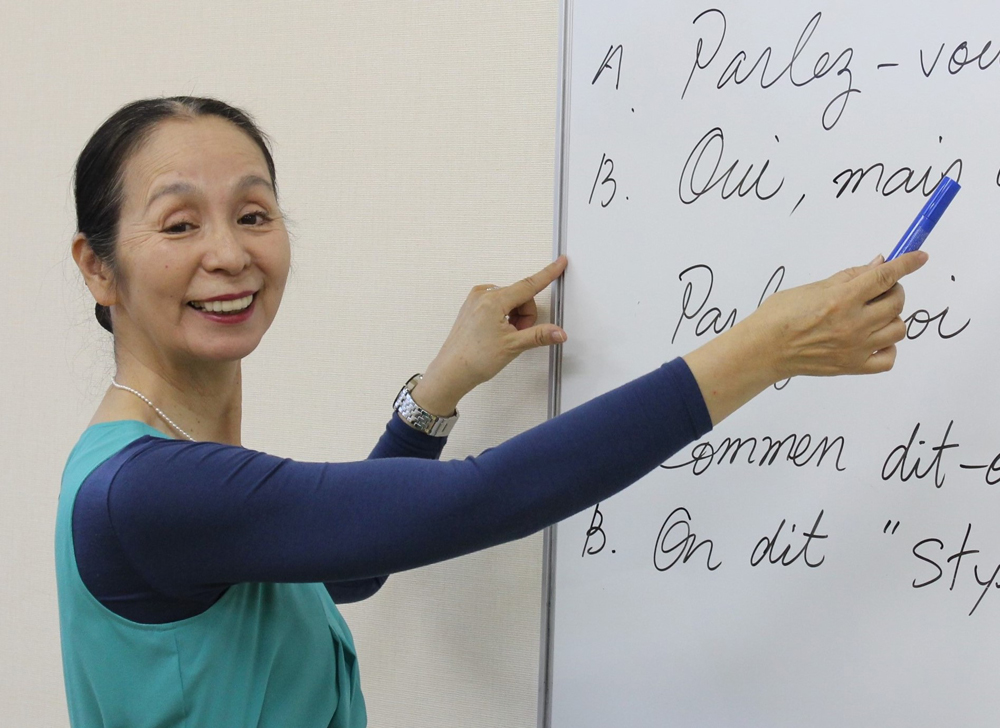 A. Parlez-vou
B. Oui, mais
oi
Commen dit-
B. On dit "Sty